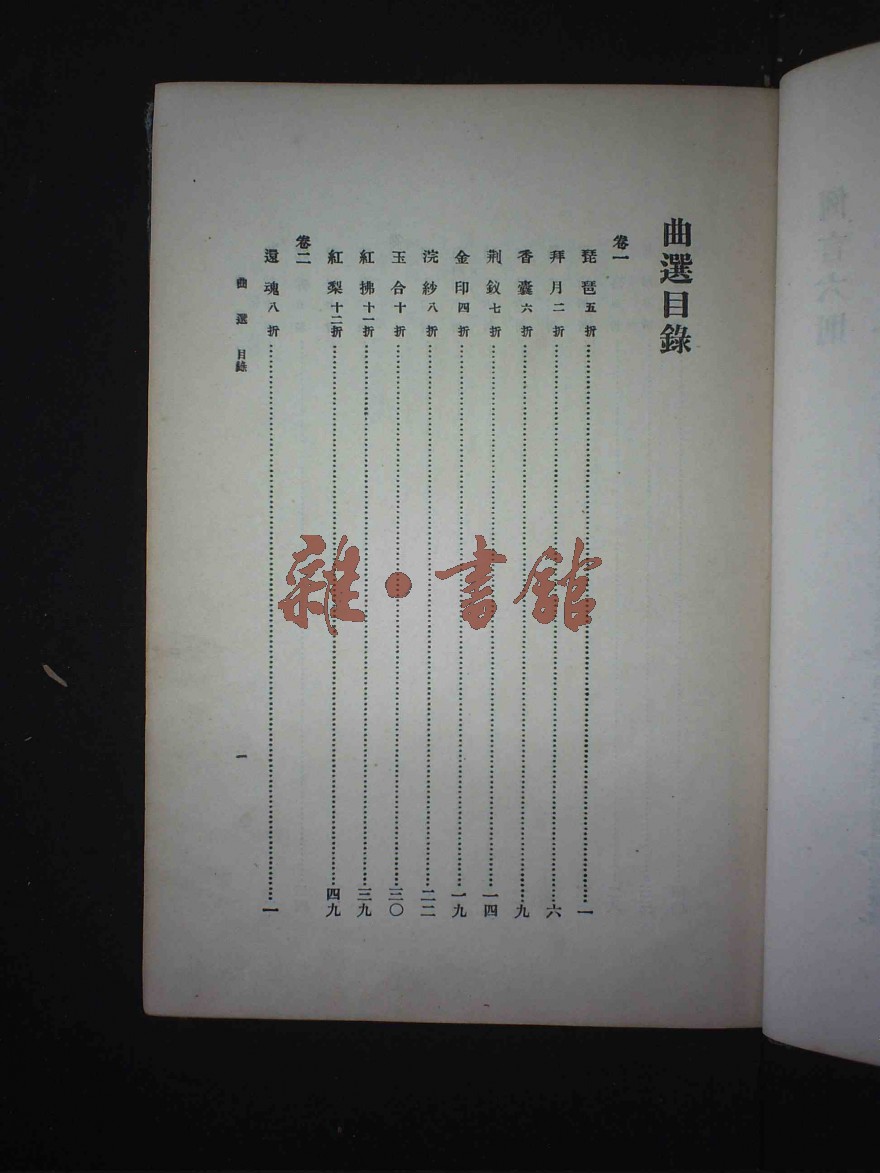 曲選目錄
卷一
琵琶五折……一
拜月二折……六
香囊六折……九
荆釵七折……一四
金印四折……一九
浣紗八折……二二
玉合十折……三〇
紅拂十一折……三九
紅梨十二折……四九
卷二
還魂八折……一
曲選 目錄 一
雜·書館